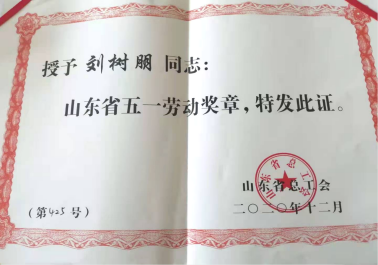 授予刘树朋同志：
山东省五一劳动奖章，特发此证。
山东省总工会
二〇二〇年十二月
（第425号）
山东省总工会